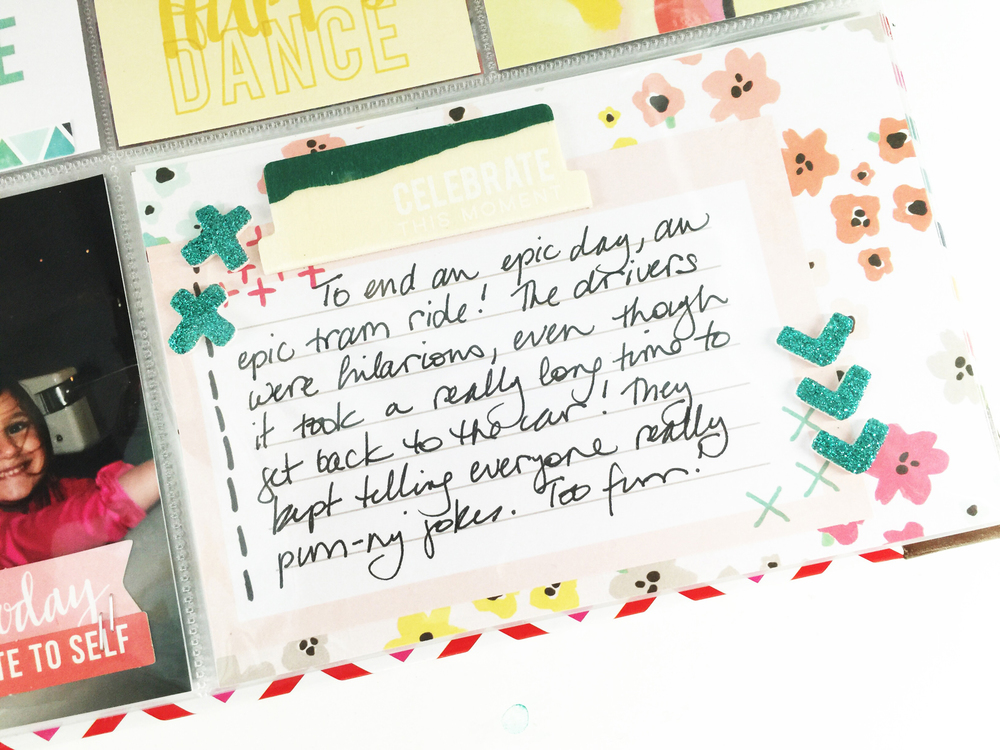 DANCE
CELEBRATE
THIS MOMENT
To end an epic day, an
epic tram ride! The drivers
were hilarious, even though
it took a really long time to
get back to the car! They
kept telling everyone really
punn-ny jokes. Too fun!
TE TO SELF